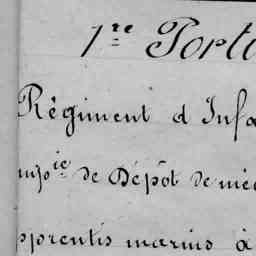 1re Porti
Régiment d'Infa
mpie de Dépôt de méc
pprentis marins à